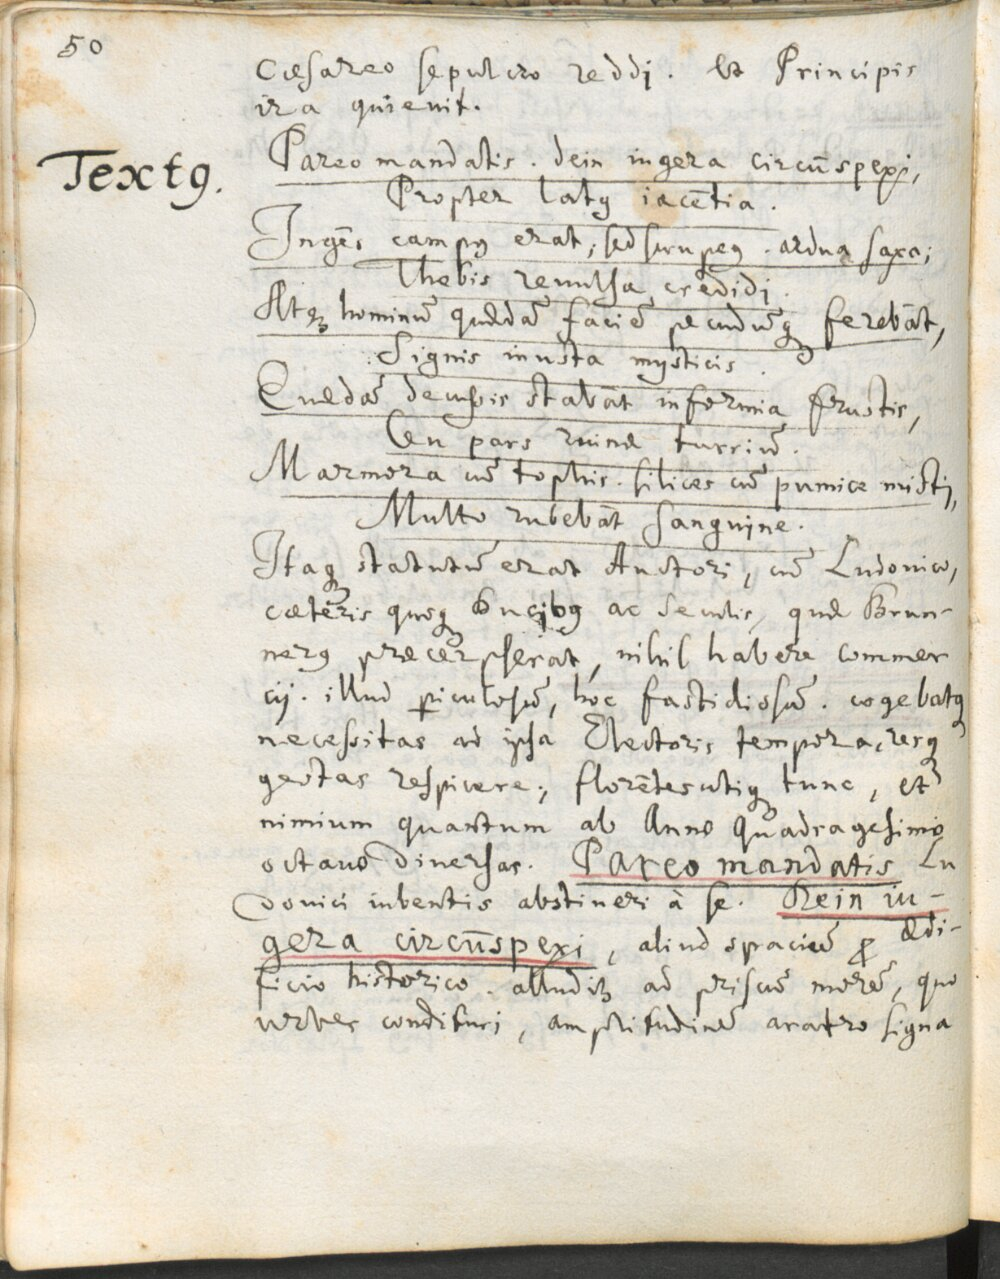 50
Cæsareo sepulcro reddj. Et Principis
ira quievit.
Text9.
Pareo mandatis. dein iugera circūspexj,
Propter lat9 iacētia.
Ingēs camp9 erat, sed scrupe9. ardua saxa;
Thebis revulsa credidj.
Atq; hominū quædā faciē pecudūq; ferebāt,
Signis inusta mysticis.
Quædā decussis stabāt informia frustis,
Ceu pars ruinæ turriū.
Marmora cū tophis. silices cū pumice misti,
Multo rubebāt sanguine.
Itaq; statutū erat Auctori, cū Ludovico,
cæteris quoq; Ducib9 ac seculis, quæ Brun-
ner9 præcerpserat, nihil habere commer
cij. illud piculosū, hoc fastidiosū. cogebat9
necessitas ad ipsa Electoris tempora, resq;
gestas respicere; florētes utiq; tunc, et
nimium quantum ab Anno Quadragesimo
octavo diversas. Pareo mandatis Lu
dovici iubentis abstineri à se. Dein iu-
gera circūspexi, aliud spaciū p ædi-
ficio historico. alludit ad priscū morē, quo
urbes condituri, amplitudinē aratro signa